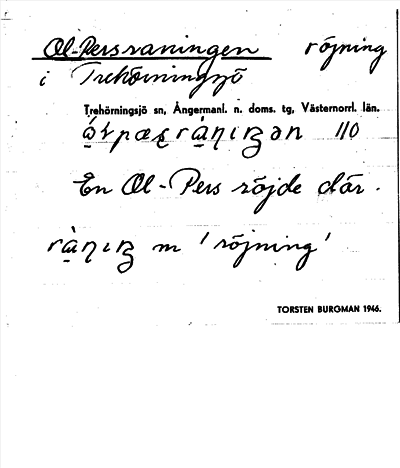 Ol-Persraningen röjning
i Trehörningsjö
Trehörningsjö sn, Ångermanl. n. doms. tg, Västernorrl. län.
110
En Ol-Pers röjde där.
m 'röjning'
TORSTEN BURGMAN 1946.